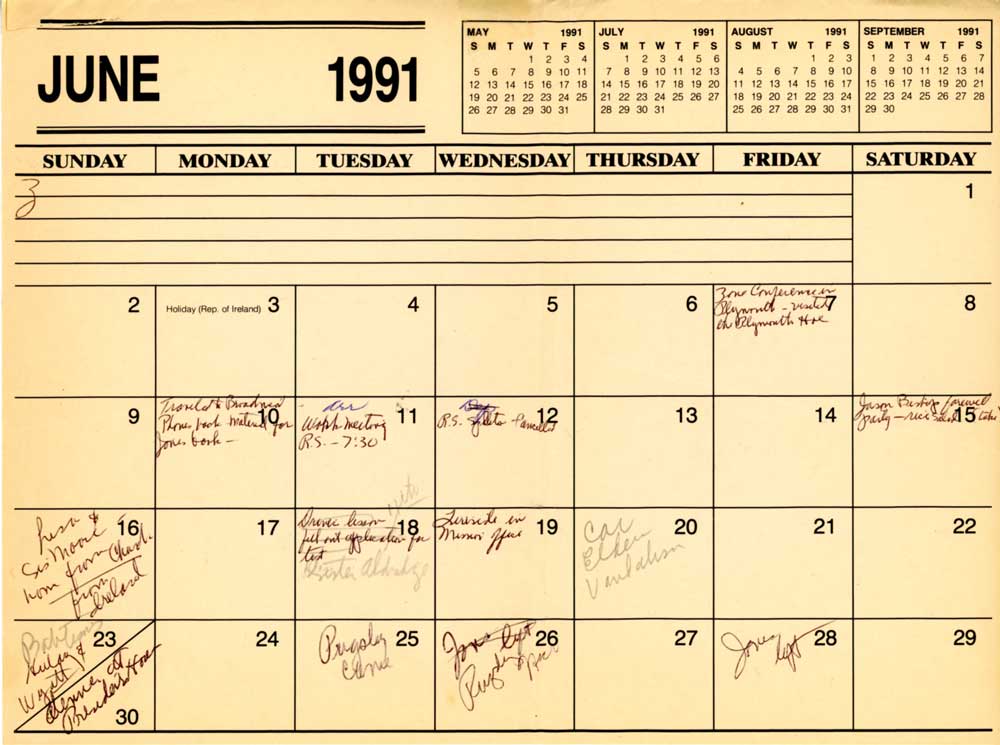 JUNE 1991
MAY 1991
S M T W T F S
1 2 3 4
5 6 7 8 9 10 11
12 13 14 15 16 17 18
19 20 21 22 23 24 25
26 27 28 29 30 31
JULY 1991
S M T W T F S
1 2 3 4 5 6
7 8 9 10 11 12 13
14 15 16 17 18 19 20
21 22 23 24 25 26 27
28 29 30 31
AUGUST 1991
S M T W T F S
1 2 3
4 5 6 7 8 9 10
11 12 13 14 15 16 17
18 19 20 21 22 23 24
25 26 27 28 29 30 31
SEPTEMBER 1991
S M T W T F S
1 2 3 4 5 6 7
8 9 10 11 12 13 14
15 16 17 18 19 20 21
22 23 24 25 26 27 28
29 30
SUNDAY MONDAY TUESDAY WEDNESDAY THURSDAY FRIDAY SATURDAY
3
1
2
Holiday (Rep. of Ireland) 3
4
5
6
Zone Conference in
Plymouth - visited 7
the Plymouth Hoe
8
9
Traveled to
Phones book material for 10
Jones book -
11
meeting
R.S. - 7:30
R.S. 12
13
14
Jason Bishop farewell
party - 15
&
16
Sis Moore
home from
from
Ireland
17
lesson 18
fill out application for
test
Sister Aldridge
Fireside in 19
Mission office
20
Car
Elden
Vandalism
21
22
Babtisms 23
&
Wyatt
Dinner at
President's Home
30
24
Pugsley 25
Came
Jones left 26
Pugsley
27
Jones 28
left
29